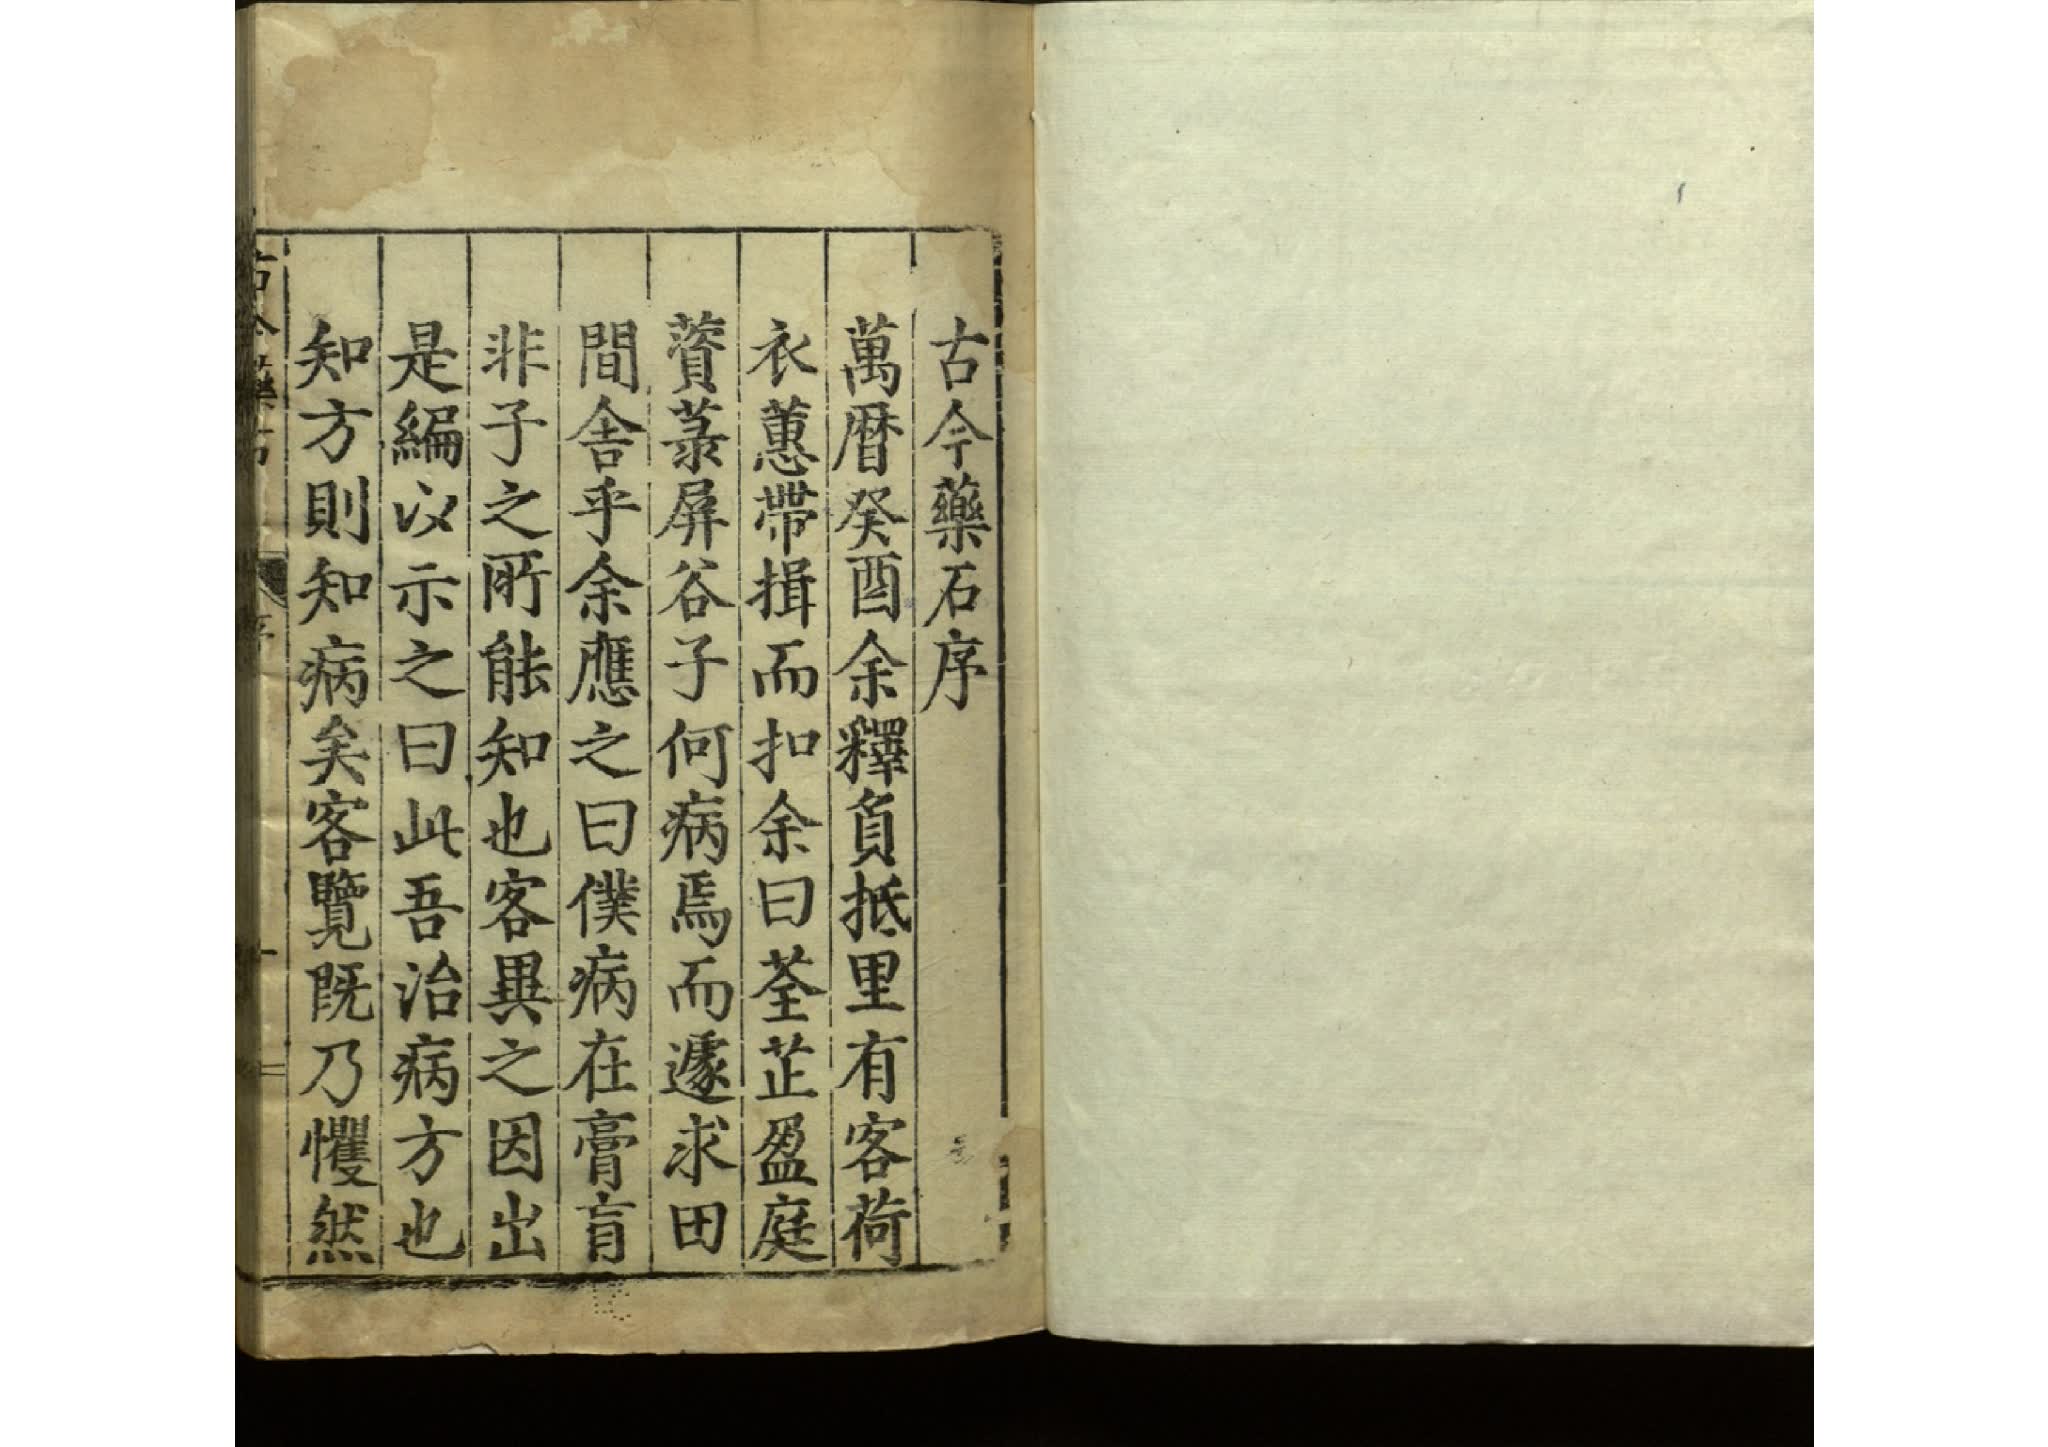 古今藥石序
萬曆癸酉余釋負抵里有客荷
衣蕙帶揖而扣余曰荃芷盈庭
薋菉屏谷子何病焉而遽求田
間舍乎余應之曰僕病在膏肓
非子之所能知也客異之因出
是編以示之曰此吾治病方也
知方則知病矣客覽既乃懼然
古今藥石
序
一